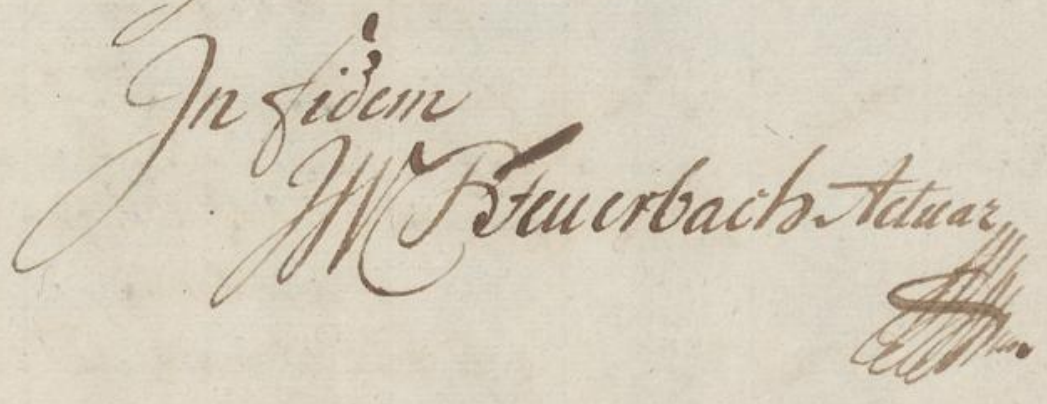 In fidem
Feuerbach Actuar